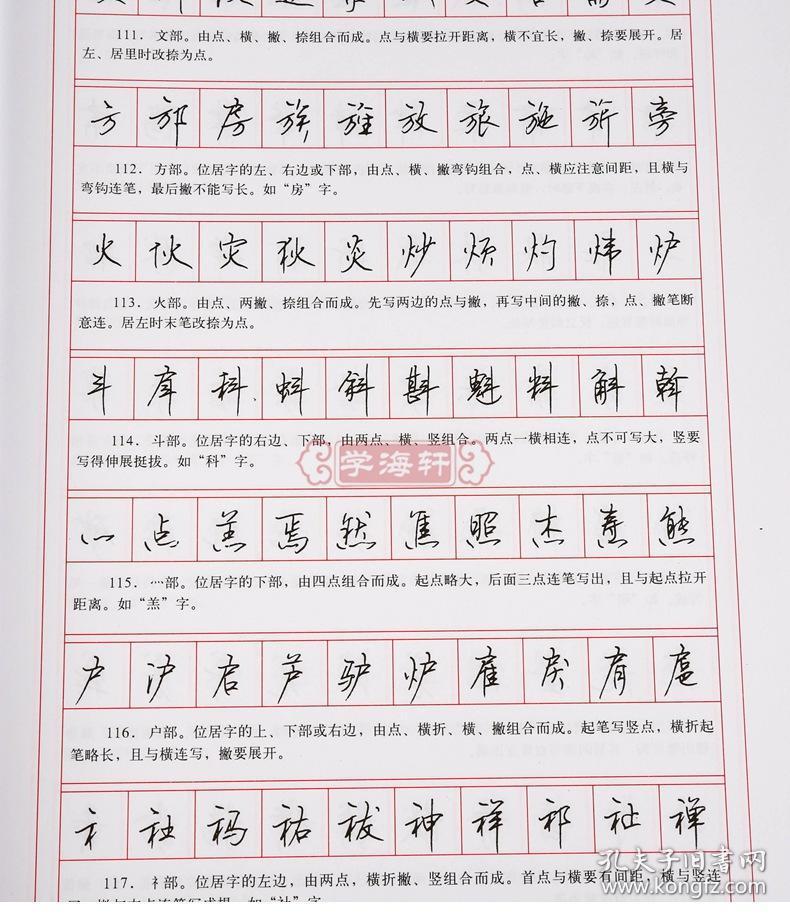 111. 文部。由点、横、撇、捺组合而成。点与横要拉开距离，横不宜长，撇、捺要展开。居
左、居里时改捺为点。
方 邡 房 族 放 旅 施 旂 旁
112. 方部。位居字的左、右边或下部，由点、横、撇弯钩组合，点、横应注意间距，且横与
弯钩连笔，最后撇不能写长。如“房”字。
火 伙 灾 狄 炎 炒 烦 灼 炜 炉
113. 火部。由点、两撇、捺组合而成。先写两边的点与撇，再写中间的撇、捺，点、撇笔断
意连。居左时末笔改捺为点。
斗 戽 科 蚪 斜 斟 魁 料 斛 斡
114. 斗部。位居字的右边、下部，由两点、横、竖组合。两点一横相连，点不可写大，竖要
写得伸展挺拔。如“科”字。
学海轩
灬 点 羔 焉 然 焦 照 杰 焘 熊
115. 灬部。位居字的下部，由四点组合而成。起点略大，后面三点连笔写出，且与起点拉开
距离。如“羔”字。
户 沪 启 芦 驴 炉 雇 戾 肩 扈
116. 户部。位居字的上、下部或右边，由点、横折、横、撇组合而成。起笔写竖点，横折起
笔略长，且与横连写，撇要展开。
礻 社 祃 祐 祓 神 祥 祁 祉 禅
117. 礻部。位居字的左边，由两点，横折撇、竖组合而成。首点与横要有间距，横与竖连
孔夫子旧书网
www.kongfz.com